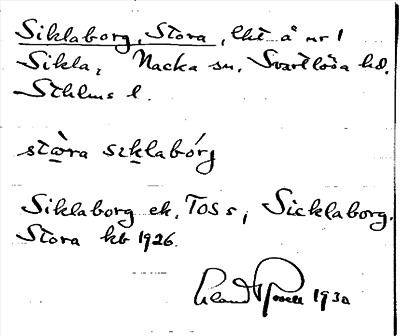 Siklaborg, Stora, lht å nr 1
Sikla, Nacka sn, Svartlösa hd.
Sthlms l.
stòra sıklabórg
Siklaborg ek. TOS s, Sicklaborg.
Stora kb 1926.
1930